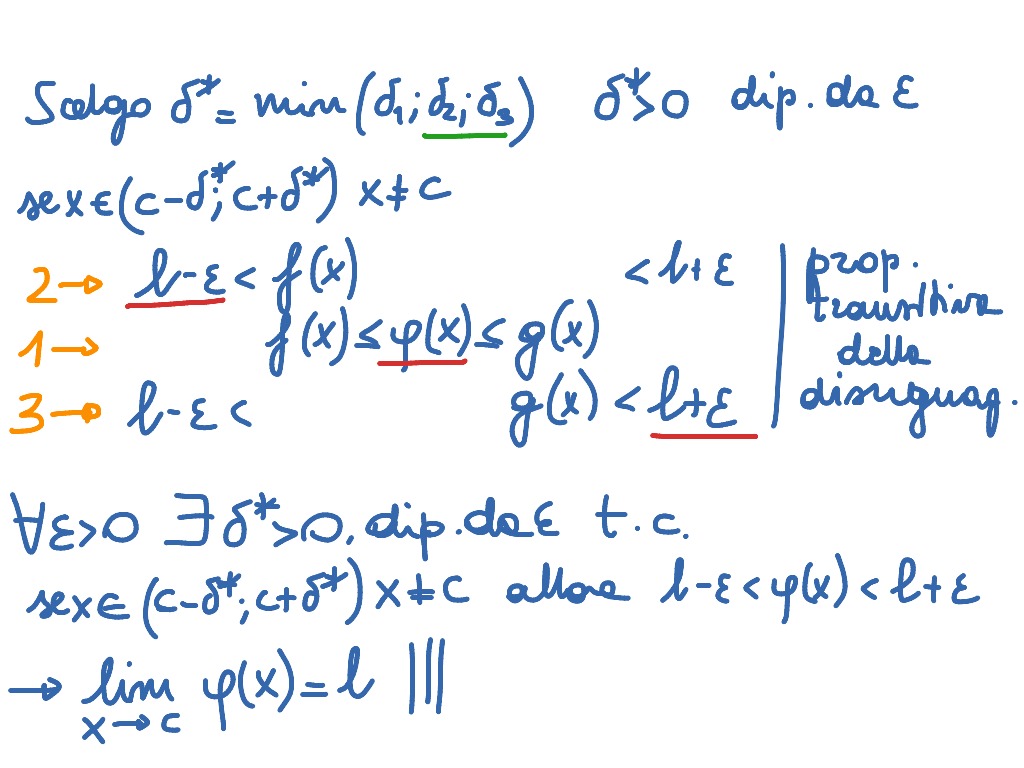 Scelgo δ* = min (δ₁; δ₂; δ₃) δ* > 0 dip. da ε
se x ∈ (c-δ*; c+δ*) x ≠ c
2 → l-ε < f(x) < l+ε
1 → f(x) ≤ φ(x) ≤ g(x)
3 → l-ε < g(x) < l+ε
prop.
transitiva
della
disuguag.
∀ε>0 ∃ δ*>0, dip. da ε t.c.
se x ∈ (c-δ*; c+δ*) x ≠ c allora l-ε < φ(x) < l+ε
→ lim φ(x) = l |||
x → c